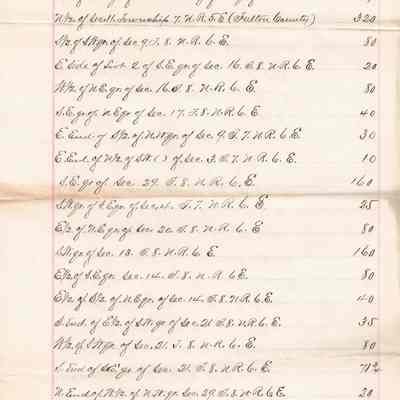 W½ of South Township 7. N. R. 5. E (Fulton County) 320
S½ of S.W.qr. of Sec. 9 T. 8. N. R. 6. E. 80
E. Side of Lot 2 of S.E.qr. of Sec. 16. T. 8. N. R. 6. E. 20
W½ of N.E.qr. of Sec. 16. T. 8. N. R. 6. E. 80
S.E.qr. of N.E.qr. of Sec. 17. T. 8. N. R. 6. E. 40
E. End of S½ of N.W.qr. of Sec. 9. T. 7. N. R. 6. E 30
E. End of W½ of of Sec. 3. T. 7. N. R. 6. E. 10
S.E.qr. of Sec. 29. T. 8. N. R. 6. E. 160
S.W.qr. of S.E.qr. of Sec. T. 7. N. R. 6. E 25
E½ of N.E.qr. of Sec. 20. T. 8. N. R. 6. E 80
S.W.qr. of Sec. 13. T. 8. N. R. 6. E 160
E½ of S.E.qr. Sec. 14. T. 8. N. R. 6 E. 80
E½ of S½ of N.E.qr. of Sec. 14. T. 8. N R. 6. E. 40
S. End. of E½ of S.W.qr. of Sec. 21 T. 8. N. R. 6 E. 35
W½ of S.W.qr. of Sec. 21. T. 8. N. R. 6. E. 80
S. End of S.E.qr. of Sec. 21. T. 8. N. R. 6. E. 71½
N. End of W½ of N.W.qr. Sec. 29. T. 8. N. R. 6 E. 20